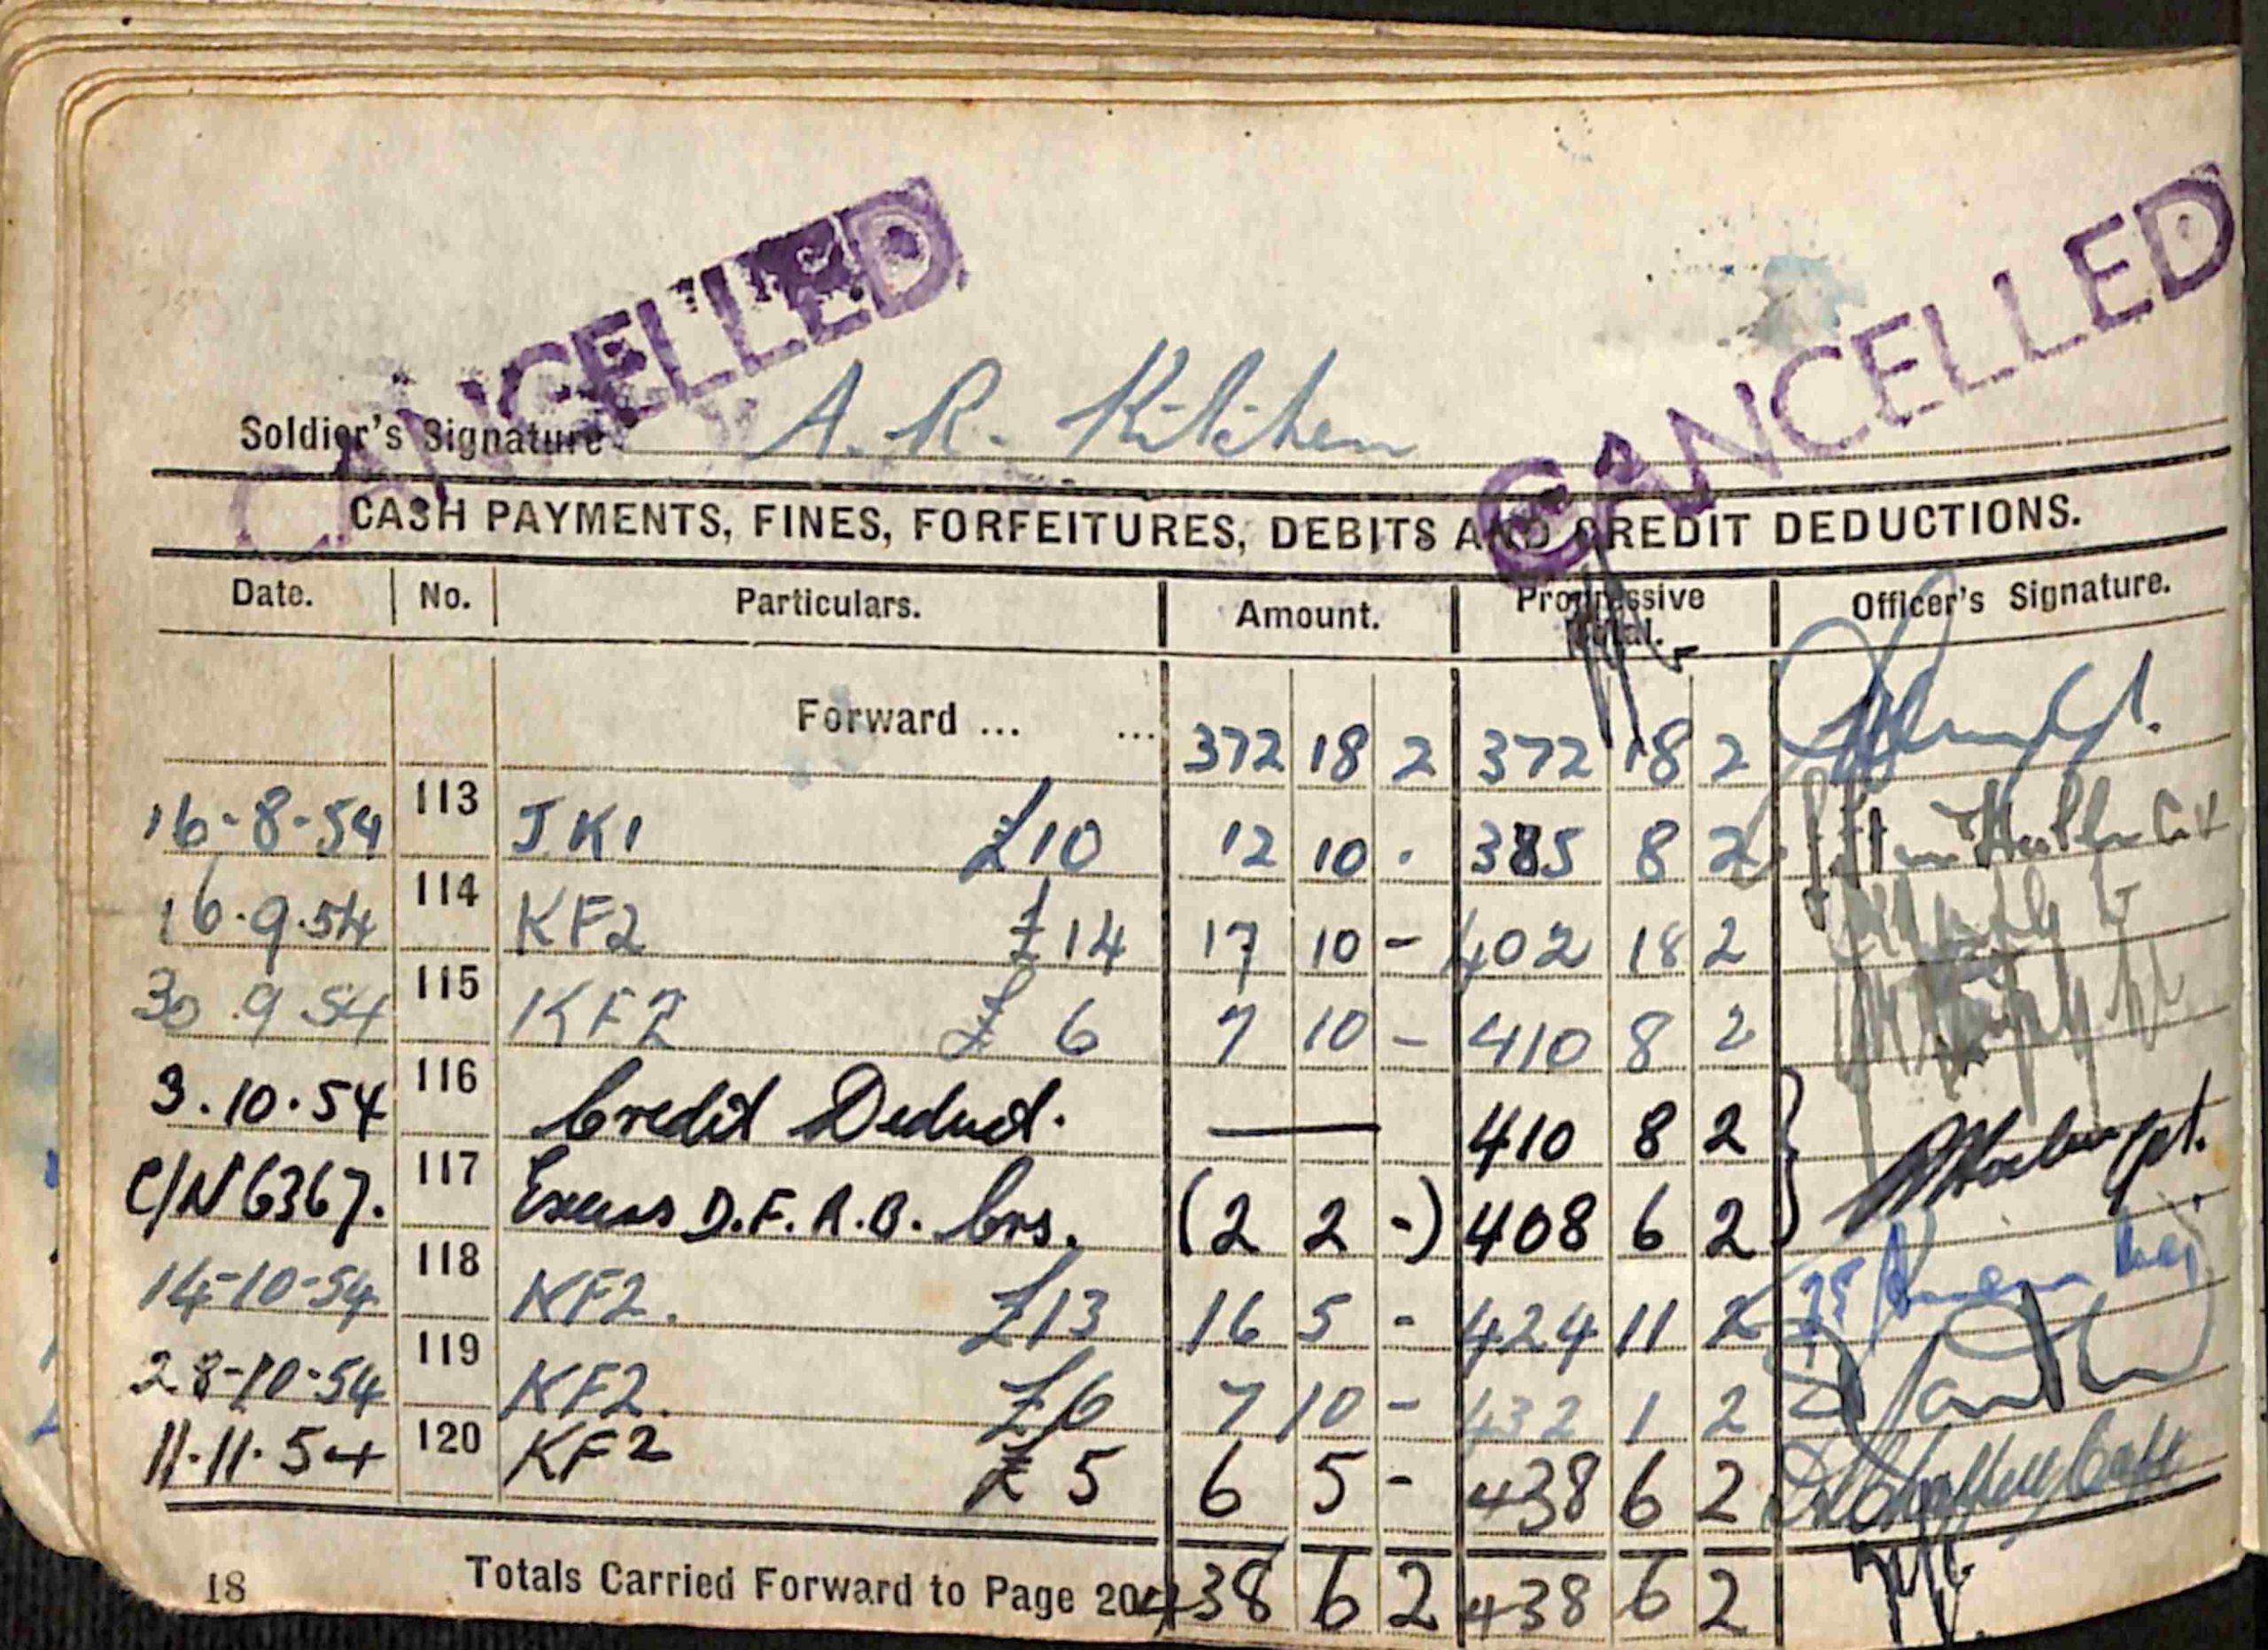 CANCELLED
CANCELLED
Soldier's Signature A. R. Kitchen
CASH PAYMENTS, FINES, FORFEITURES, DEBITS AND CREDIT DEDUCTIONS.
Date. No. Particulars. Amount. Progressive Total. Officer's Signature.
Forward ... ... 372 18 2 372 18 2
16-8-54 113 JK1 £10 12 10 - 385 8 2
16.9.54 114 KF2 £14 17 10 - 402 18 2
30.9.54 115 KF2 £ 6 7 10 - 410 8 2
3.10.54 116 Credit Deduct. — 410 8 2
C/N 6367. 117 Excess D.F.R.B. Crs. (2 2 -) 408 6 2
14-10-54 118 KF2. £13 16 5 - 424 11 2
28-10-54 119 KF2. £6 7 10 - 432 1 2
11.11.54 120 KF2 £ 5 6 5 - 438 6 2
18 Totals Carried Forward to Page 20 438 6 2 438 6 2